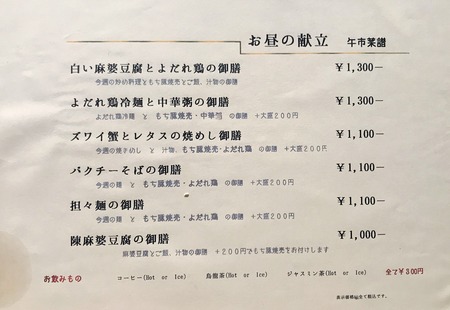 お昼の献立 午市菜譜
白い麻婆豆腐とよだれ鶏の御膳 ¥1,300ー
今週の炒め料理ともち豚焼売とご飯、汁物の御膳 +大盛200円
よだれ鶏冷麺と中華粥の御膳 ¥1,300ー
よだれ鶏冷麺 と もち豚焼売・中華粥 の御膳 +大盛200円
ズワイ蟹とレタスの焼めし御膳 ¥1,100ー
今週の焼きめし と 汁物、もち豚焼売・よだれ鶏 の御膳 +大盛200円
パクチーそばの御膳 ¥1,100ー
今週の麺 と もち豚焼売・よだれ鶏 の御膳 +大盛200円
担々麺の御膳 ¥1,100ー
今週の麺 と もち豚焼売・よだれ鶏 の御膳 +大盛200円
陳麻婆豆腐の御膳 ¥1,000ー
麻婆豆腐とご飯、汁物の御膳 +200円でもち豚焼売をお付けします
お飲みもの コーヒー(Hot or Ice) 烏龍茶(Hot or Ice) ジャスミン茶(Hot or Ice) 全て¥300円
表示価格は全て税込です。